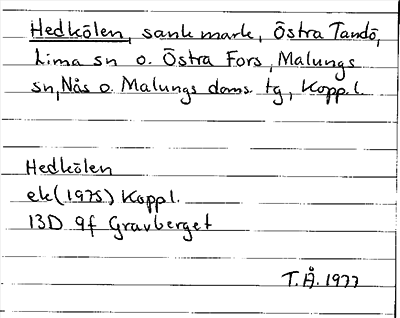 Hedkölen, sank mark, Östra Tandö,
Lima sn o. Östra Fors, Malungs
sn, Nås o. Malungs doms. tg, Kopp. l.
Hedkölen
ek (1975) Koppl.
13D 9f Gravberget
T.Å. 1977